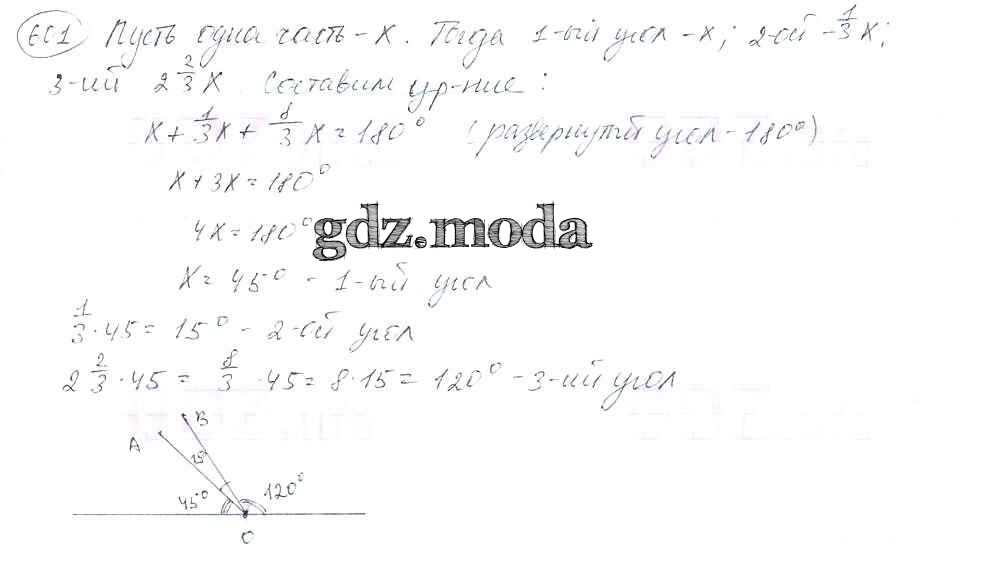 601 Пусть одна часть - x. Тогда 1-ый угол - x; 2-ой - 1/3 x;
3-ий 2 2/3 x Составим ур-ние:
x + 1/3 x + 8/3 x = 180° (развернутый угол - 180°)
x + 3x = 180°
4x = 180°
gdz.moda
x = 45° - 1-ый угол
1/3 · 45 = 15° - 2-ой угол
2 2/3 · 45 = 8/3 · 45 = 8 · 15 = 120° - 3-ий угол
B
A
15°
45° 120°
O